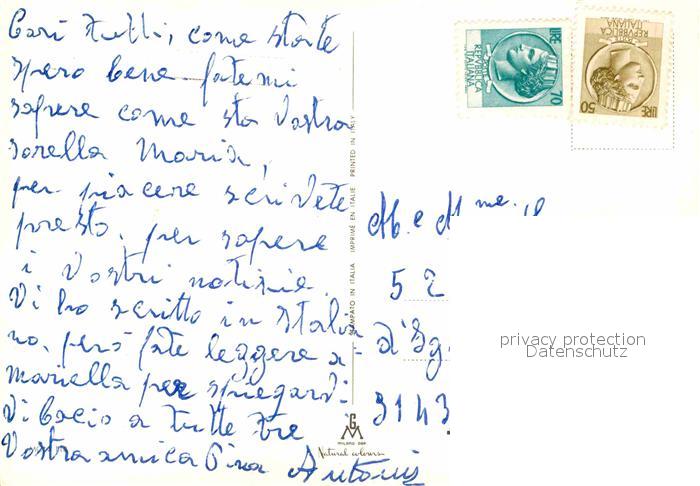 Cari Tutti, come state
spero bene fatemi
sapere come sta Vostra
sorella Maria,
per piacere scrivete
presto, per sapere
i Vostri notizie.
Vi ho scritto in Italia
no, però fate leggere a
Mariella per spiegarvi
Vi bacio a tutte tre
Vostra amica Pina Antonis
STAMPATO IN ITALIA IMPRIMÉ EN ITALIE PRINTED IN ITALY
GM
MILANO
Natural colours
LIRE
REPVBBLICA
ITALIANA
70
LIRE
REPVBBLICA
ITALIANA
50
M. e Mme.
52
3143
privacy protection
Datenschutz